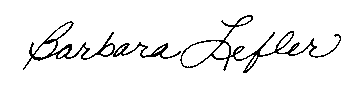 Barbara Lefler